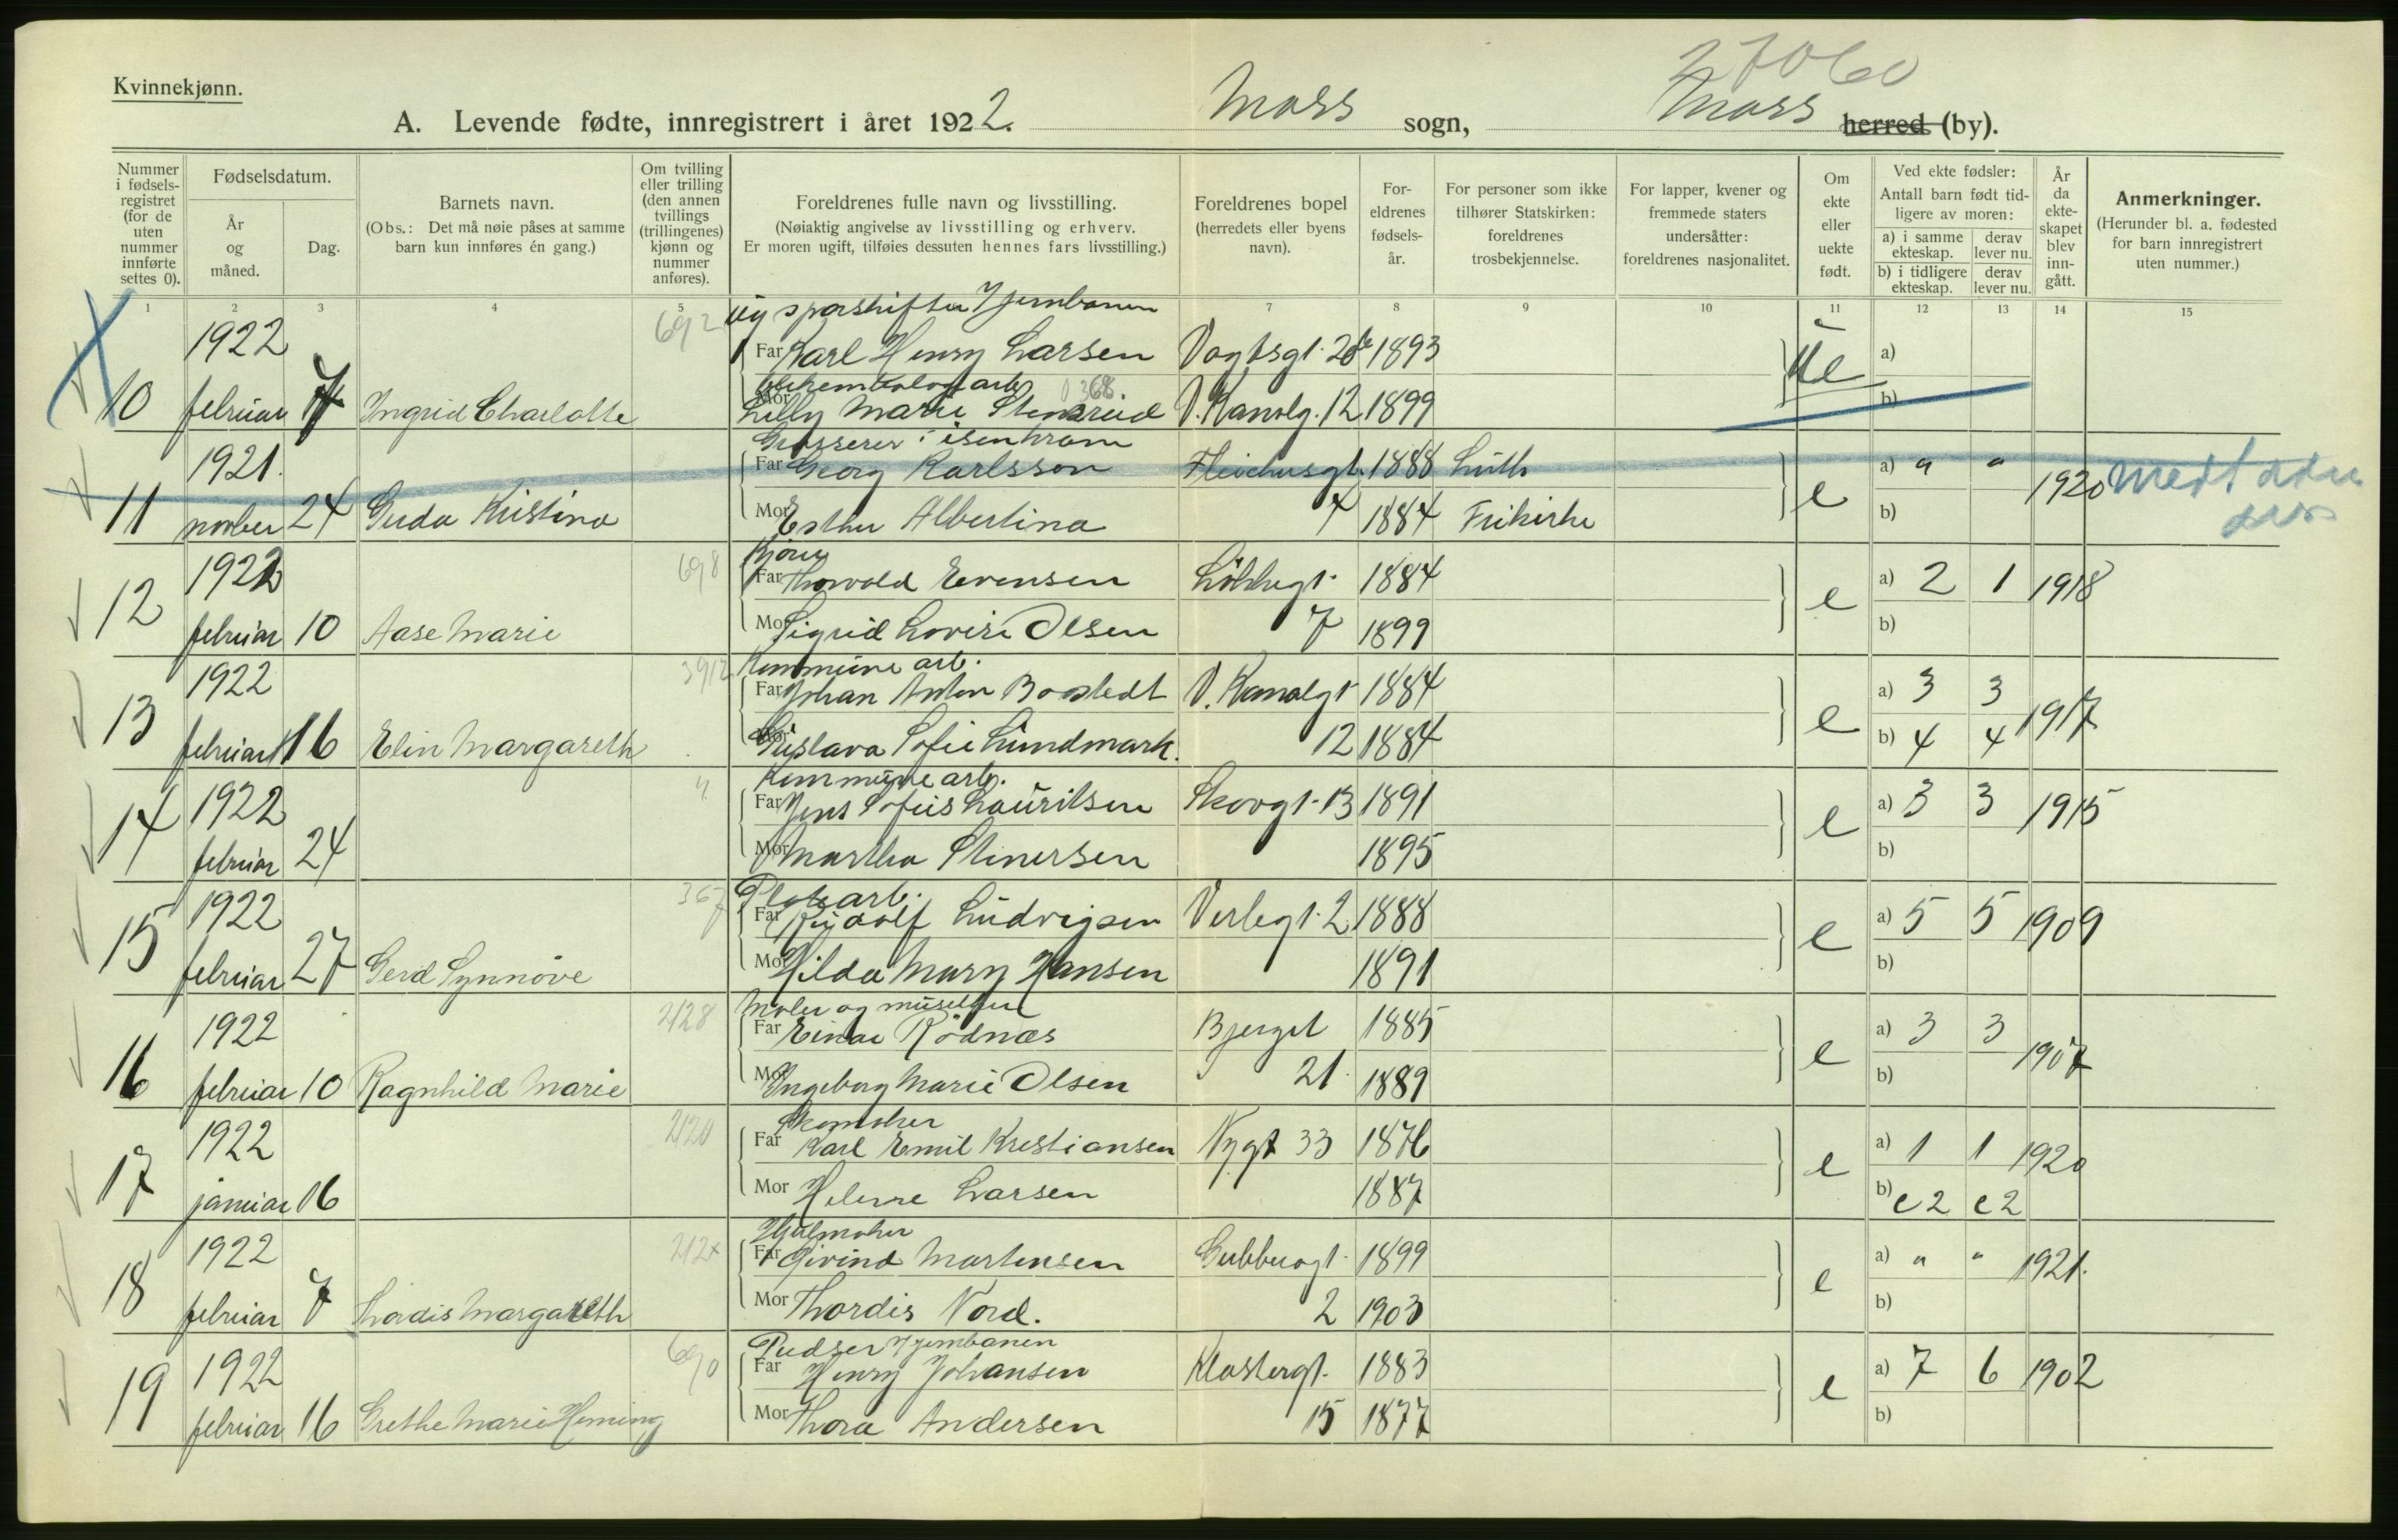 Kvinnekjønn.
27060
A. Levende fødte, innregistrert i året 1922. Moss sogn, Moss herred (by).
Nummer i fødsels-registret (for de uten nummer innførte settes 0).
Fødselsdatum.
År og måned.
Dag.
Barnets navn.
(Obs.: Det må nøie påses at samme barn kun innføres én gang.)
Om tvilling eller trilling (den annen tvillings (trillingenes) kjønn og nummer anføres).
Foreldrenes fulle navn og livsstilling.
(Nøiaktig angivelse av livsstilling og erhverv. Er moren ugift, tilføies dessuten hennes fars livsstilling.)
Foreldrenes bopel (herredets eller byens navn).
For-eldrenes fødsels-år.
For personer som ikke tilhører Statskirken: foreldrenes trosbekjennelse.
For lapper, kvener og fremmede staters undersåtter: foreldrenes nasjonalitet.
Om ekte eller uekte født.
Ved ekte fødsler: Antall barn født tid-ligere av moren:
a) i samme ekteskap. derav lever nu.
b) i tidligere ekteskap. derav lever nu.
År da ekte-skapet blev inn-gått.
Anmerkninger.
(Herunder bl. a. fødested for barn innregistrert uten nummer.)
1 2 3 4 5 7 8 9 10 11 12 13 14 15
692 ug sporskifter Jernbanen
1922 Far Karl Henry Larsen Vogtsgt. 1893 ue a)
arb. 368
10 februar 7 Ingrid Charlotte Mor Lilly Marie Stensrud V. Kanalg. 12 1899 b)
Grosserer i isenkram
1921. Far Georg Karlsson 1888 Luth a) " " 1920
11 novber 24 Gerda Kristina Mor Esther Albertina 4 1884 Frikirke e b)
698 Kjører
1922 Far Thorvald Evensen 1884 a) 2 1 1918
12 februar 10 Aase Marie Mor Sigrid Lovise Olsen 7 1899 e b)
3912 Kommune arb.
1922 Far Johan Anton Bostedt V. Kanalgt 1884 a) 3 3 1917
13 februar 16 Elin Margareth Mor Gustava Sofie Lundmark. 12 1884 e b) 4 4
" Kommune arb.
1922 Far Jens Sofus Lauritsen Skovgt. 13 1891 a) 3 3 1915
14 februar 24 Mor Martha Stenersen 1895 e b)
367 Pladsarb.
1922 Far Rudolf Ludvigsen Verlegt. 2 1888 a) 5 5 1909
15 februar 27 Gerd Synnöve Mor Hilda Mary Hansen 1891 e b)
2128 Maler og musiker
1922 Far Einar Rödnæs Bjerget 1885 a) 3 3 1907
16 februar 10 Ragnhild Marie Mor Ingeborg Marie Olsen 21 1889 e b)
2120 Skomaker
1922 Far Karl Emil Kristiansen Nygt 33 1876 a) 1 1 1920
17 januar 16 Mor Helene Larsen 1887 e b) e 2 e 2
212x Hjulmaker
1922 Far Eivind Martinsen Gubberogt. 1899 a) " " 1921.
18 februar 7 Thordis Margareth Mor Thordis Nord. 2 1903 e b)
690 Pudser Jernbanen
1922 Far Henry Johansen Klostergt. 1883 a) 7 6 1902
19 februar 16 Grethe Marie Heming Mor Thora Andersen 15 1877 e b)